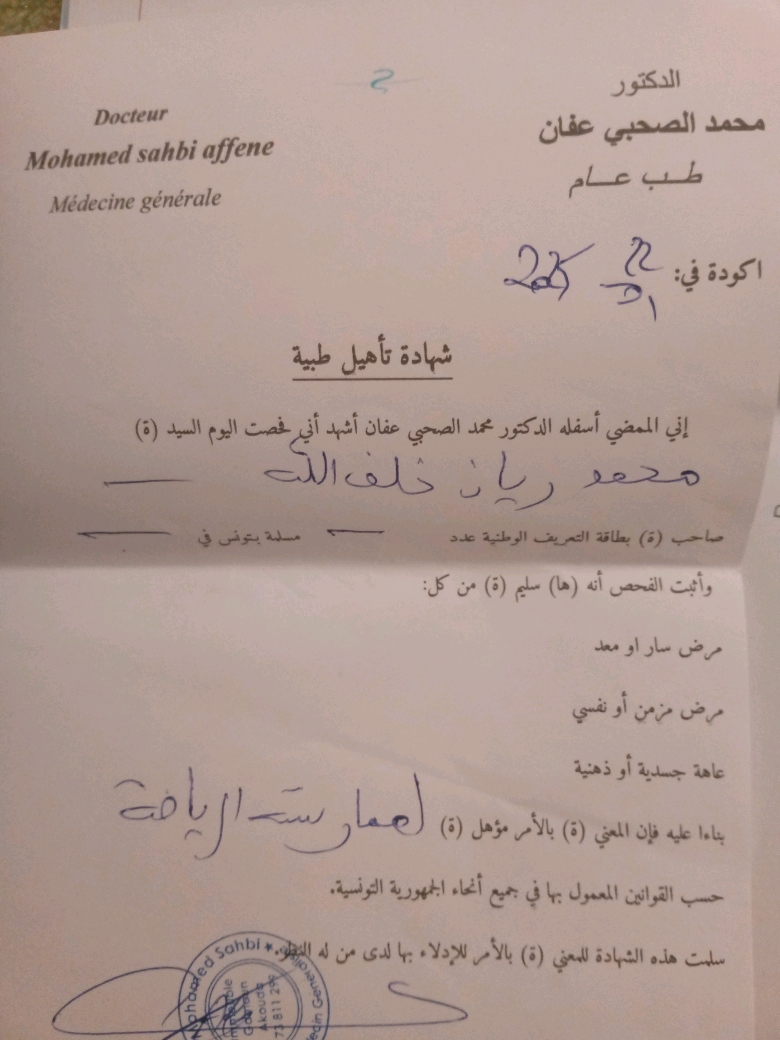 الدكتور
محمد الصحبي عفان
طب عام
Docteur
Mohamed sahbi affene
Médecine générale
اكودة في: 22 01 2025
شهادة تأهيل طبية
إني الممضي أسفله الدكتور محمد الصحبي عفان أشهد أني فحصت اليوم السيد (ة)
محمد ريان خلف الله
صاحب (ة) بطاقة التعريف الوطنية عدد — مسلمة بتونس في —
وأثبت الفحص أنه (ها) سليم (ة) من كل:
مرض سار او معد
مرض مزمن أو نفسي
عاهة جسدية أو ذهنية
بناءا عليه فإن المعني (ة) بالأمر مؤهل (ة) لممارسة الرياضة
حسب القوانين المعمول بها في جميع أنحاء الجمهورية التونسية.
سلمت هذه الشهادة للمعني (ة) بالأمر للإدلاء بها لدى من له النظر.
Mohamed Sahbi
Akouda
73 811 299